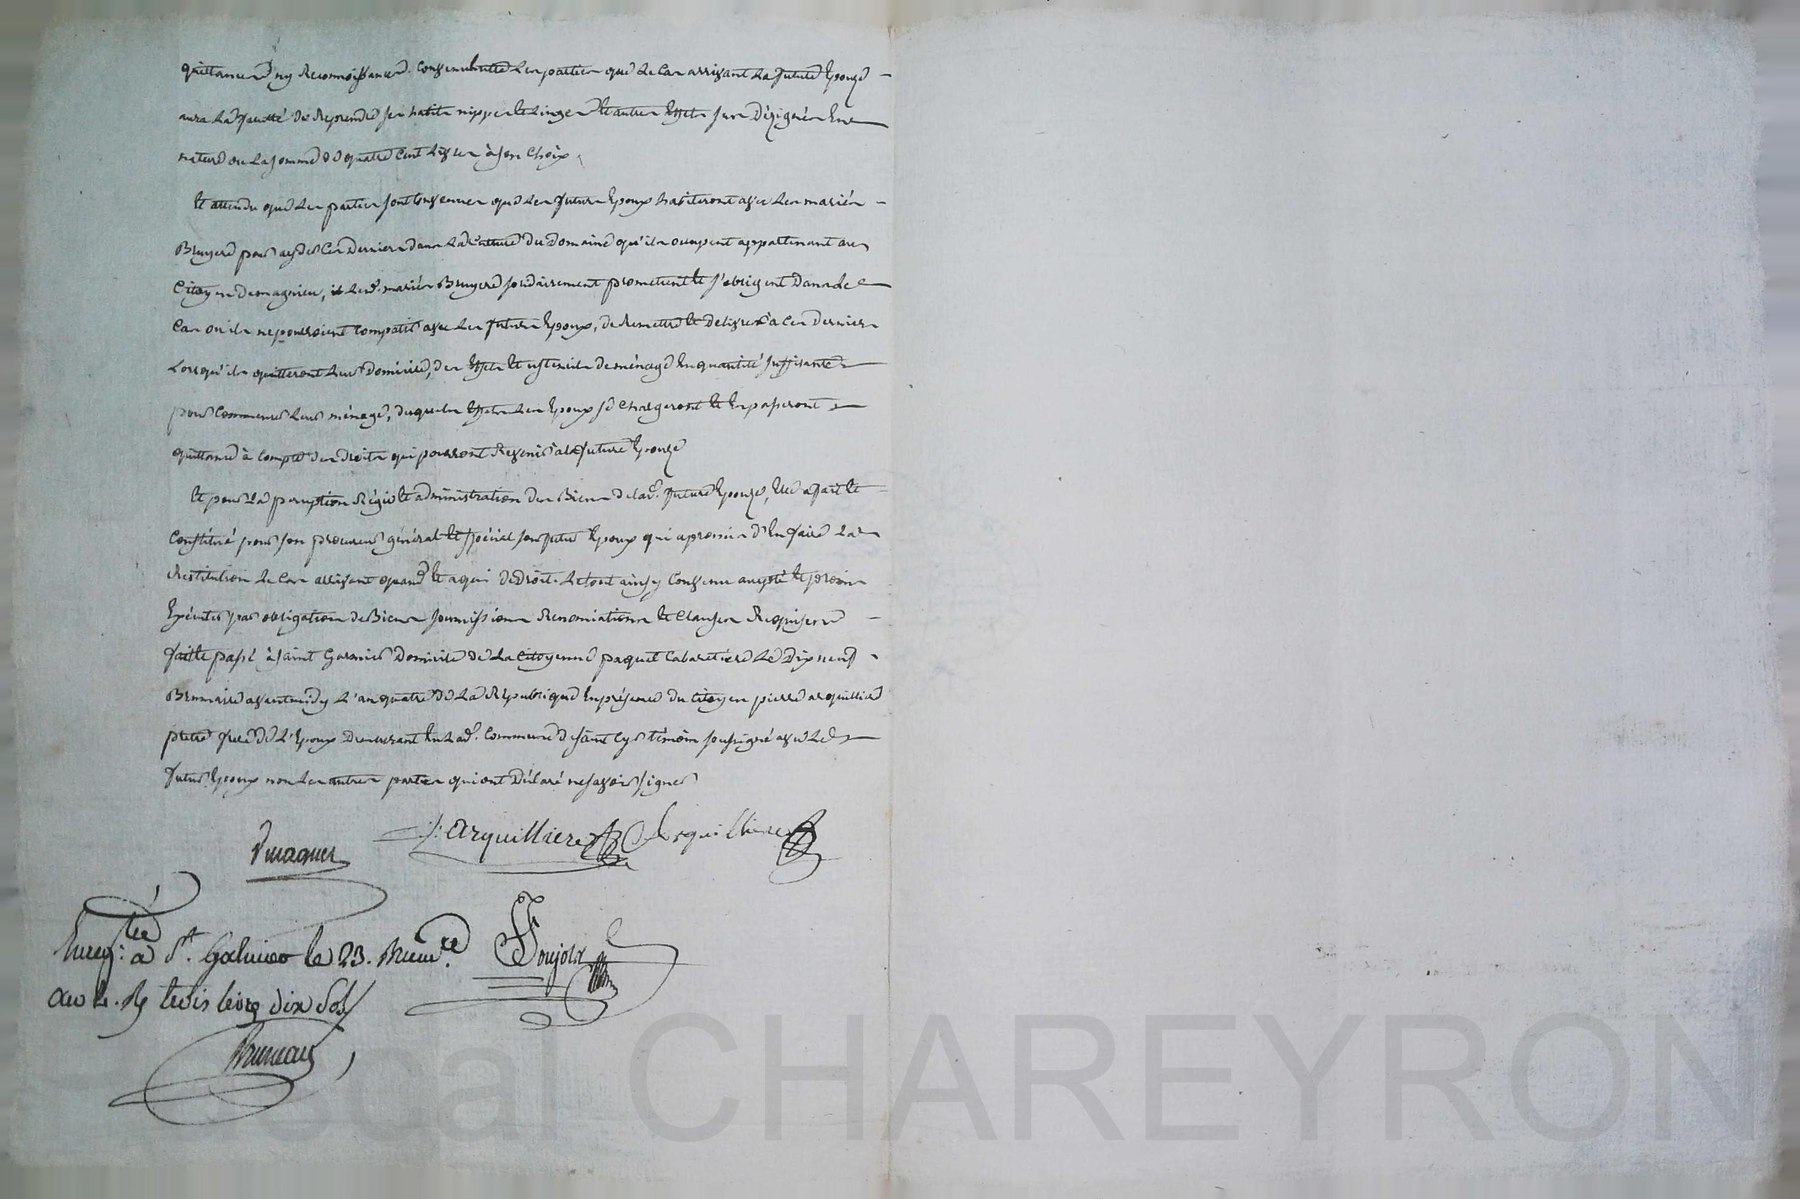 quittance ny reconnoissance. Convenu entre les parties que le cas arrivant la future Epouse
aura la faculté de reprendre ses habits nippes et linges et autres effets sus désignés En
nature ou la somme de quatre cent livres à son choix.
Et attendu que les parties sont Convenues que les futurs Epoux habiteront avec les mariés
Bruyere pour ayder Ces derniers dans la Culture du Domaine qu'ils occupent appartenant au
Citoyen demagnieu, lesd. mariés Bruyere solidairement promettent et s'obligent Dans le
Cas où ils ne pourroient Compatir avec les futurs Epoux, de remettre et délivrer à Ces derniers
Lorsqu'ils quitteront leur Domicile, des Effets et ustensils de ménage En quantité suffisante
pour Commencer leur ménage, desquels Effets les Epoux se Chargeront et En passeront
quittance à Compte des droits qui pourront Revenir à la future Epouse
Et pour la perception Régie et administration des Biens de lad. future Epouse, Elle a fait et
Constitué pour son procureur général et spécial son futur Epoux qui a promis d'En faire la
Restitution le Cas arrivant quand et a qui de droit. Le tout ainsy Convenu accepté et promis
Exécuter par obligation de Biens soumissions Renonciations et Clauses Requises
fait et passé à saint Galmier Domicile de la Citoyenne paquet Cabaretiere Le Dix neuf
Brumaire avant midy L'an quatre de La République En présence du Citoyen pierre arquilliere
pretre frere de L'Epoux Demeurant En lad. Commune de saint Cyr témoin soussigné avec le
futur Epoux non les autres parties qui ont Déclaré ne savoir signer
P: Arquilliere Arquilliere
Enreg.tré à St. Galmier le 23. Brum.re
an 4. R trois livres dix sols